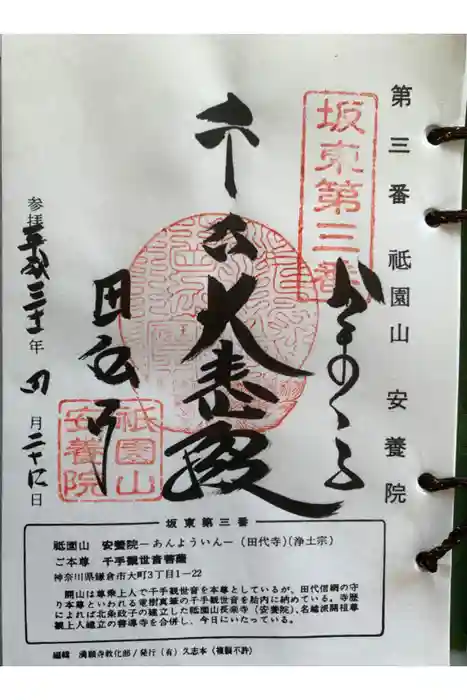 第三番 祇園山 安養院
坂東第三番
かまくら
千手
大悲殿
田代寺
祇園山
安養院
参拝平成三十一年四月二十七日
坂東第三番
祗園山 安養院―あんよういん―(田代寺)(浄土宗)
ご本尊 千手観世音菩薩
神奈川県鎌倉市大町3丁目1―22
開山は尊乗上人で千手観世音を本尊としているが、田代信綱の守
り本尊といわれる竜樹真筆の千手観世音を胎内に納めている。寺歴
によれば北条政子の建立した祗園山長楽寺(安養院)、名越派開祖尊
観上人建立の善導寺を合併し、今日にいたっている。
編輯 満願寺教化部/発行(有)久志本(複製不許)